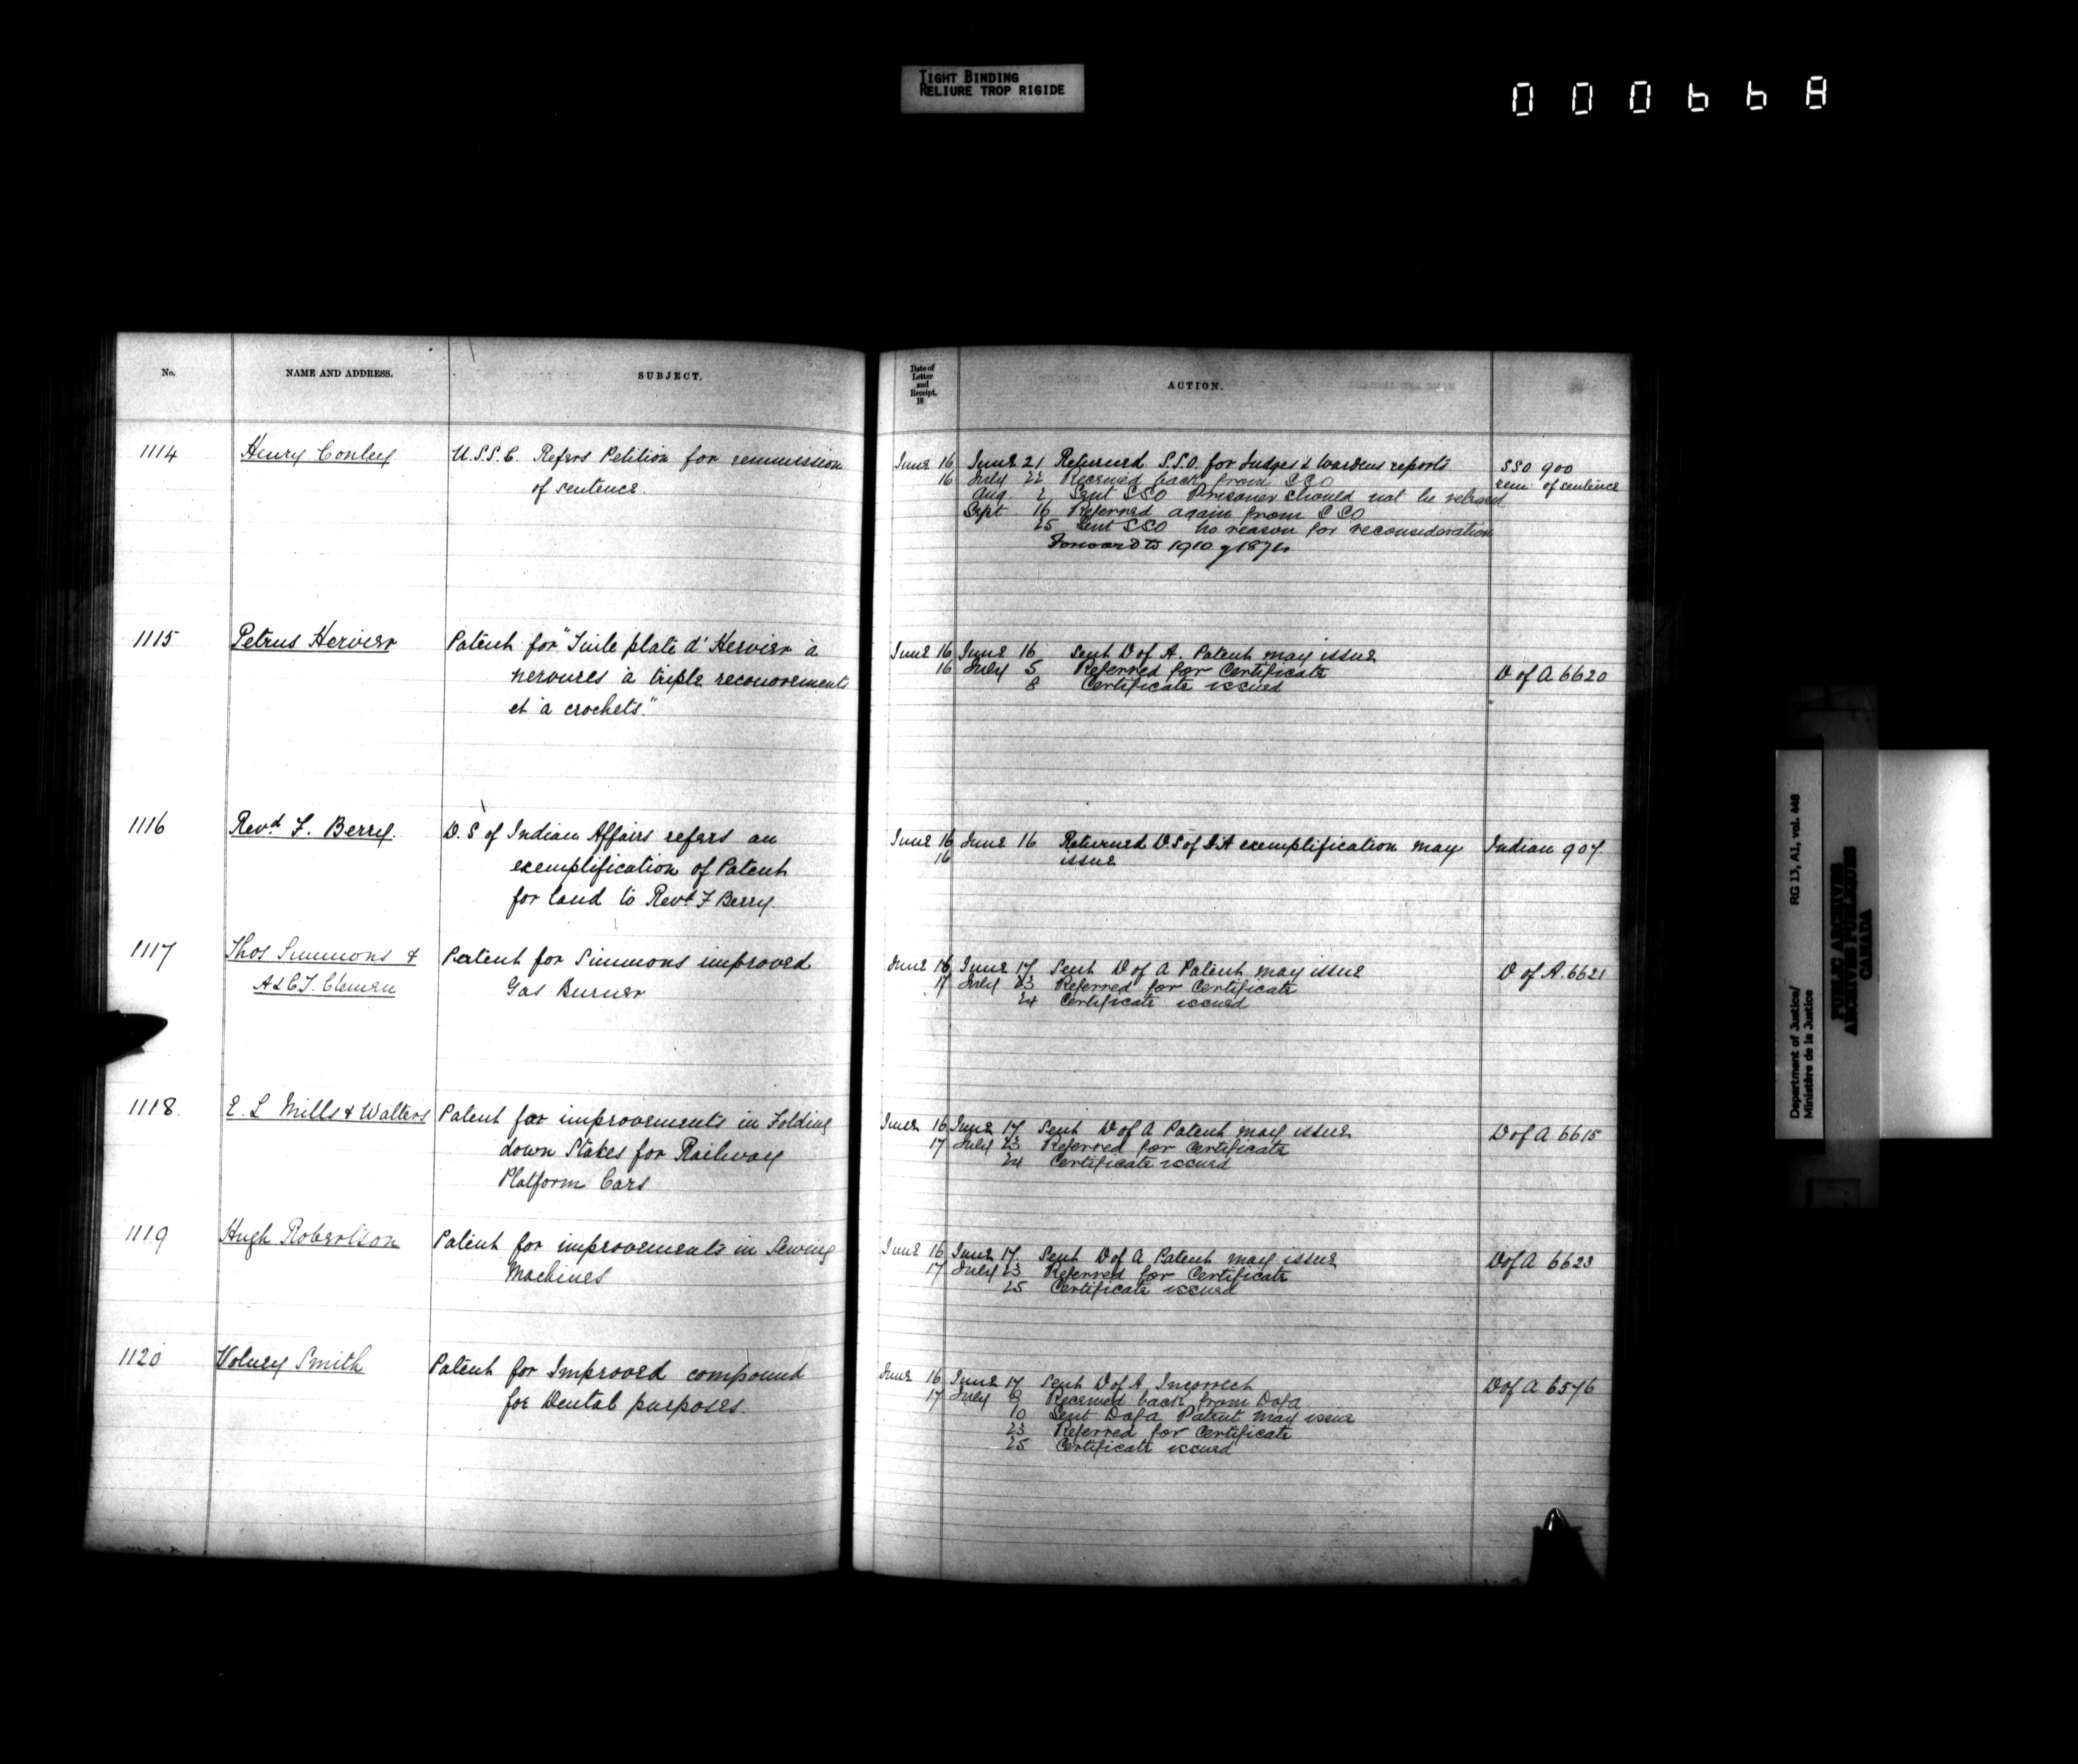 TIGHT BINDING
RELIURE TROP RIGIDE
000668
No.
NAME AND ADDRESS.
SUBJECT.
Date of
Letter
and
Receipt.
18
ACTION.
1114
Henry Conley
U.S.S.C. Refers Petition for remission
of sentence.
June 16 June 21 Returned S.S.O. for Judges & Wardens reports
16 July 22 Received back from SSO
Aug 2 Sent SSO Prisoner should not be released
Sept 16 Referred again from SSO
25 Sent SSO no reason for reconsideration
Forward to 1910 of 187
SSO 900
rem. of sentence
1115
Petrus Hervier
Patent for "Tuile plate d'Hervier à
nervures à triple recouvrements
et à crochets."
June 16 June 16 Sent D of A. Patent may issue
16 July 5 Referred for Certificate
8 Certificate issued
D of A 6620
1116
Revd F. Berry.
D. S of Indian Affairs refers an
exemplification of Patent
for land to Revd F Berry.
June 16 June 16 Returned D S of I A exemplification may
16 issue
Indian 907
1117
Thos Simmons &
A & C.T.
Patent for Simmons improved
Gas Burner
June 16 June 17 Sent D of A Patent may issue
17 July 23 Referred for Certificate
24 Certificate issued
D of A. 6621
1118.
E. L Mills & Walters
Patent for improvements in Folding
down Stakes for Railway
Platform Cars
June 16 June 17 Sent D of A Patent may issue
17 July 23 Referred for Certificate
24 Certificate issued
D of A 6615
1119
Hugh Robertson
Patent for improvements in Sewing
Machines
June 16 June 17 Sent D of A Patent may issue
17 July 23 Referred for Certificate
25 Certificate issued
D of A 6623
1120
Volney Smith
Patent for Improved compound
for Dental purposes.
June 16 June 17 Sent D of A Incorrect
17 July 8 Received back from D of A
10 Sent D of A Patent may issue
23 Referred for Certificate
25 Certificate issued
D of A 6576
Department of Justice/
Ministère de la Justice
RG 13, A1, vol. 448
PUBLIC ARCHIVES
ARCHIVES PUBLIQUES
CANADA